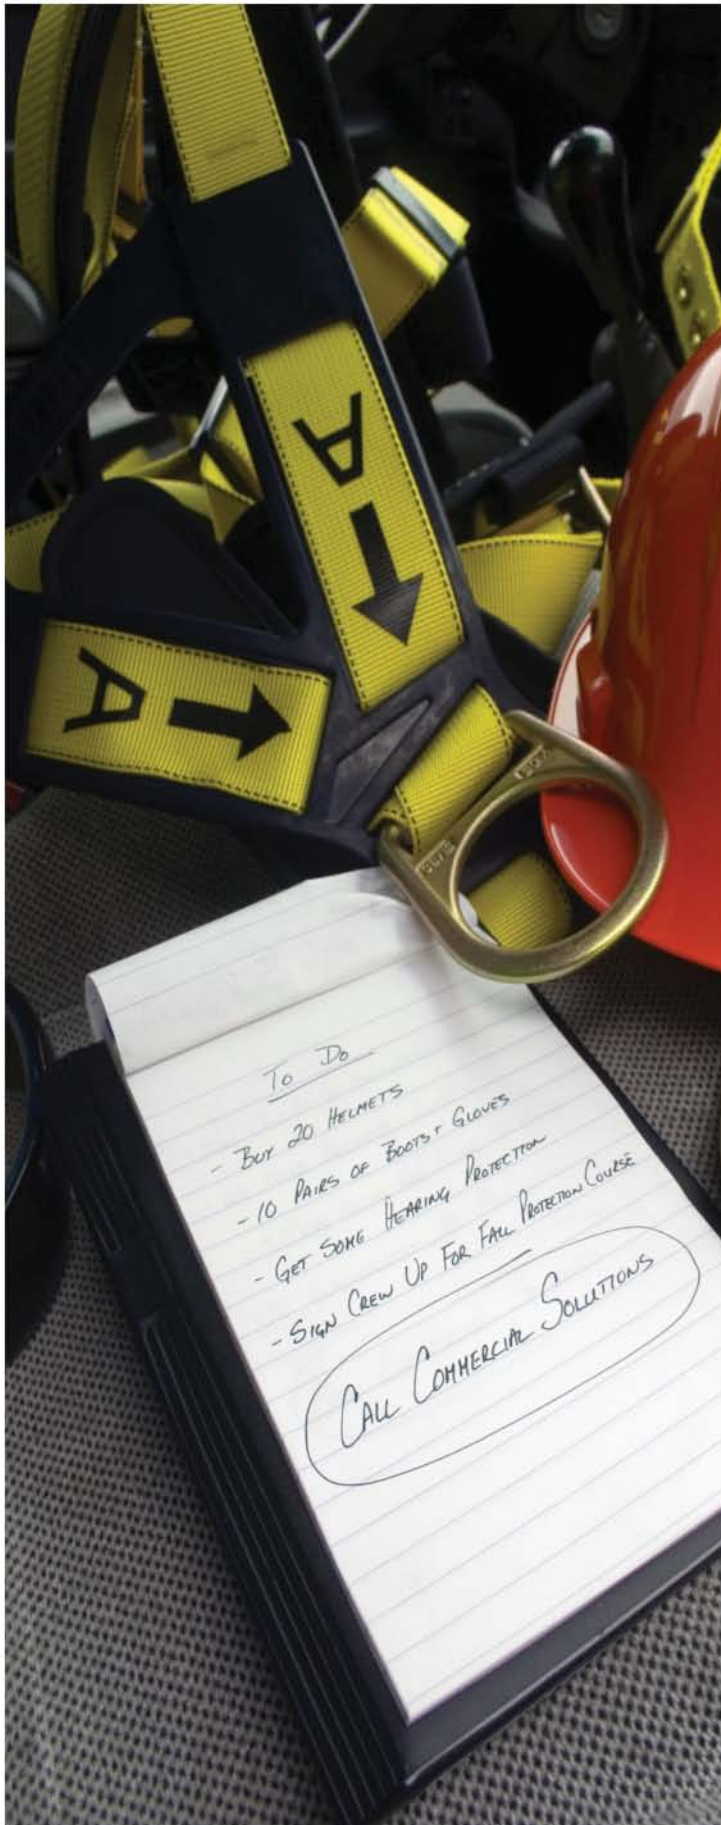 A
A
To Do
- Buy 20 Helmets
- 10 Pairs of Boots + Gloves
- Get Some Hearing Protection
- Sign Crew Up For Fall Protection Course
Call Commercial Solutions